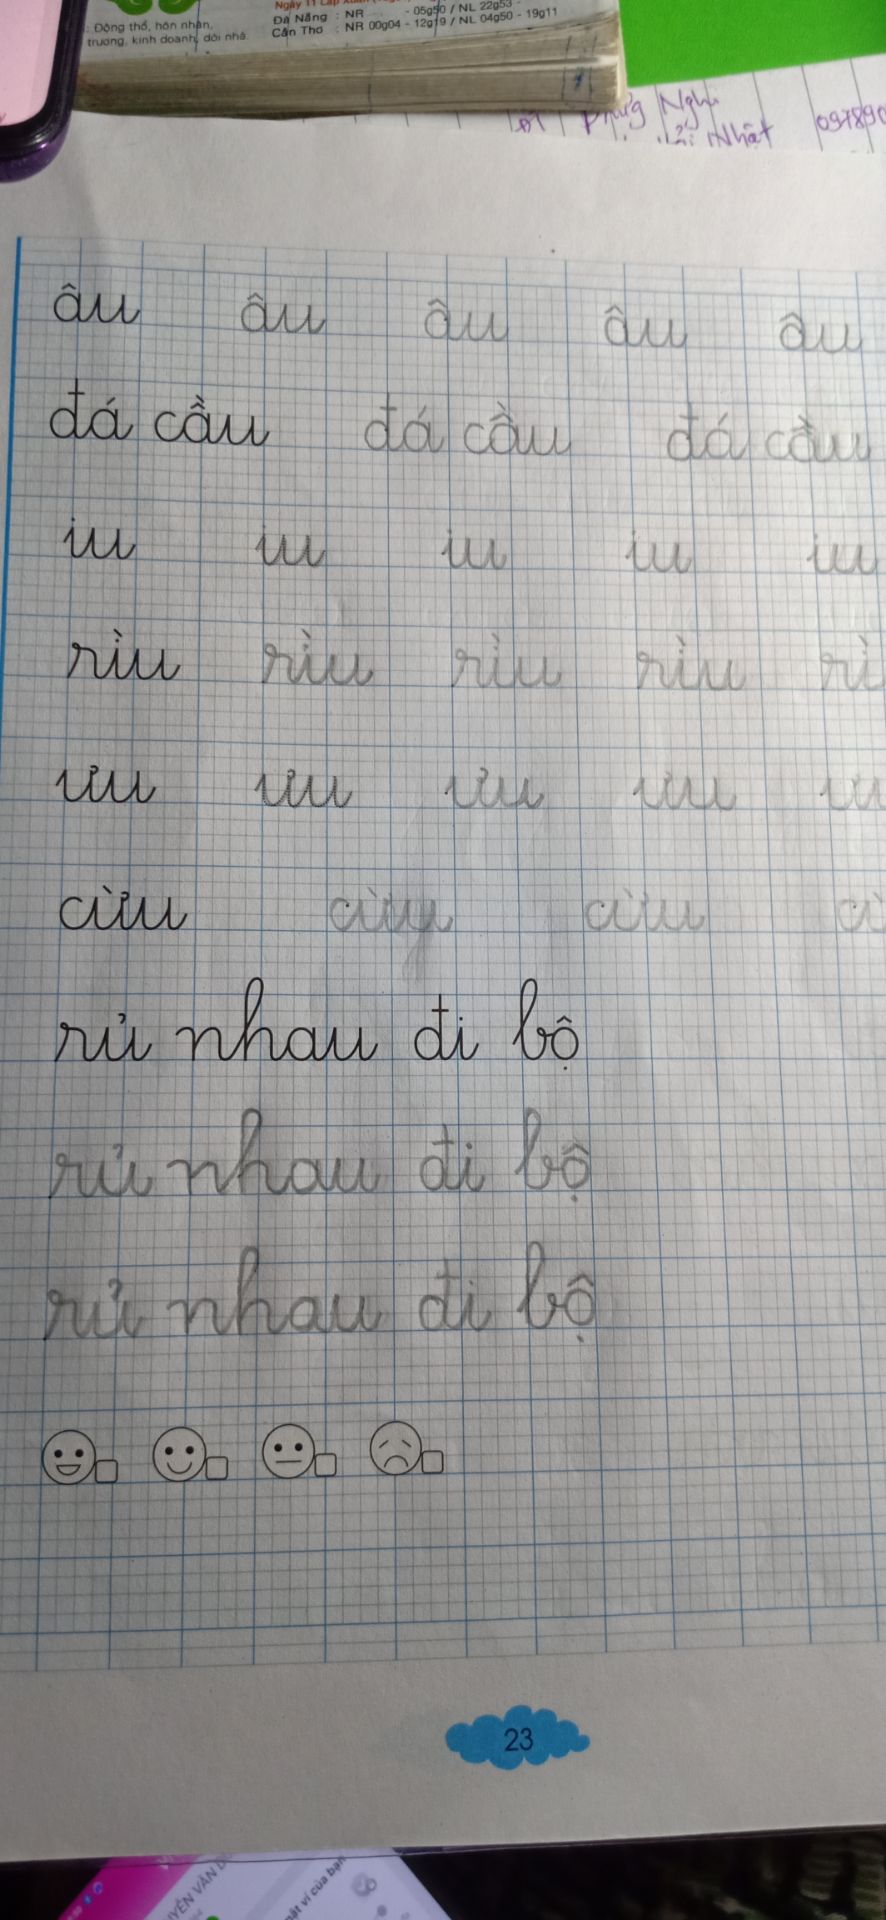 Ngày 11 Lập Xuân
: Động thổ, hôn nhân, Đà Nẵng : NR - 05g50 / NL 22g53 -
trương, kinh doanh, dời nhà Cần Thơ : NR 00g04 - 12g19 / NL 04g50 - 19g11
Nghi
Nhật 097890
âu âu âu âu âu
đá cầu đá cầu đá cầu
iu iu iu iu iu
rìu rìu rìu rìu rì
ưu ưu ưu ưu ưu
cừu cừu cừu c
rủ nhau đi bộ
rủ nhau đi bộ
rủ nhau đi bộ
23
YỄN VĂN
ví của bạn